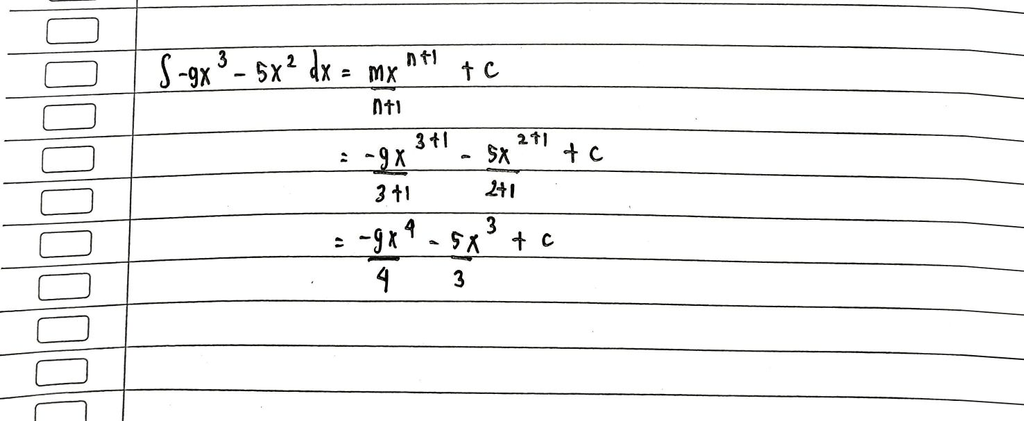 ∫ -9x³ - 5x² dx = mxⁿ⁺¹/n+1 + c
= -9x³⁺¹/3+1 - 5x²⁺¹/2+1 + c
= -9x⁴/4 - 5x³/3 + c